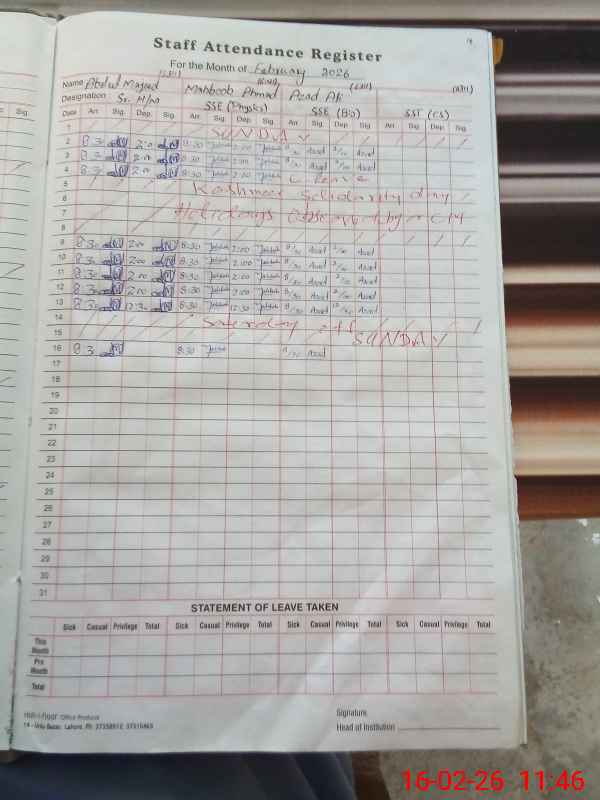 Staff Attendance Register
For the Month of February 2026
Name Abdul Majeed Mahboob Ahmad Azad Ali
Designation Sr. H/M SSE (Physics) SSE (Bio) SST (CS)
Sig. Date Arr. Sig. Dep. Sig. Arr. Sig. Dep. Sig. Arr. Sig. Dep. Sig. Arr. Sig. Dep. Sig.
1 SUNDAY
2 8.30 2:00 8:30 2:00 8/30 Azad 2/00 Azad
3 8.30 2:00 8:30 2:00 8/30 Azad 2/00 Azad
4 8.30 2:00 8:30 2:00 Leave
5 Kashmeer Solidarity day
6
7 Holidays Observed by CM
8
9 8:30 2:00 8:30 2:00 8/30 Azad 2/00 Azad
10 8:30 2:00 8:30 2:00 8/30 Azad 2/00 Azad
11 8:30 2:00 8:30 2:00 8/30 Azad 2/00 Azad
12 8:30 2:00 8:30 2:00 8/30 Azad 2/00 Azad
13 8:30 12:30 8:30 12:30 8/30 Azad 12/30 Azad
14 Saterday off
15 SUNDAY
16 8:30 8:30 8/30 Azad
17
18
19
20
21
22
23
24
25
26
27
28
29
30
31
STATEMENT OF LEAVE TAKEN
Sick Casual Privilege Total Sick Casual Privilege Total Sick Casual Privilege Total Sick Casual Privilege Total
This Month
Pre Month
Total
Office Products
14 - Urdu Bazar, Lahore. Ph:
Signature
Head of Institution
16-02-26 11:46